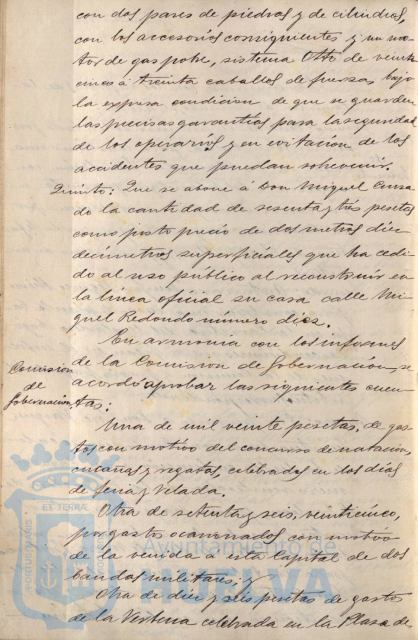 con dos pares de piedras y de cilindros,
con los accesorios consiguientes y un mo-
tor de gas pobre, sistema Otto de veinte
cinco á treinta caballos de fuerza, bajo
la expresa condicion de que se guarden
las precisas garantías para la seguridad
de los operarios y en evitacion de los
accidentes que puedan sobrevenir.
Quinto: Que se abone á Don Miguel Casa
do la cantidad de sesenta y tres pesetas
como justo precio de dos metros diez
decímetros superficiales que ha cedi-
do al uso público al reconstruir en
la línea oficial su casa calle Mi-
guel Redondo número diez.
Comision
de
Gobernacion
En armonia con los informes
de la Comision de Gobernacion, se
acordó aprobar las siguientes cuen-
tas:
Una de mil veinte pesetas, de gas-
tos con motivo del concurso de natacion,
cucañas y regatas, celebrados en los días
de feria y Velada.
Otra de setenta y seis, veinticinco,
por gasto ocasionados con motivo
de la venida a esta Capital de dos
bandas militares; y
Otra de diez y seis pesetas de gastos
de la Verbena celebrada en la Plaza de
Ayuntamiento de
HUELVA